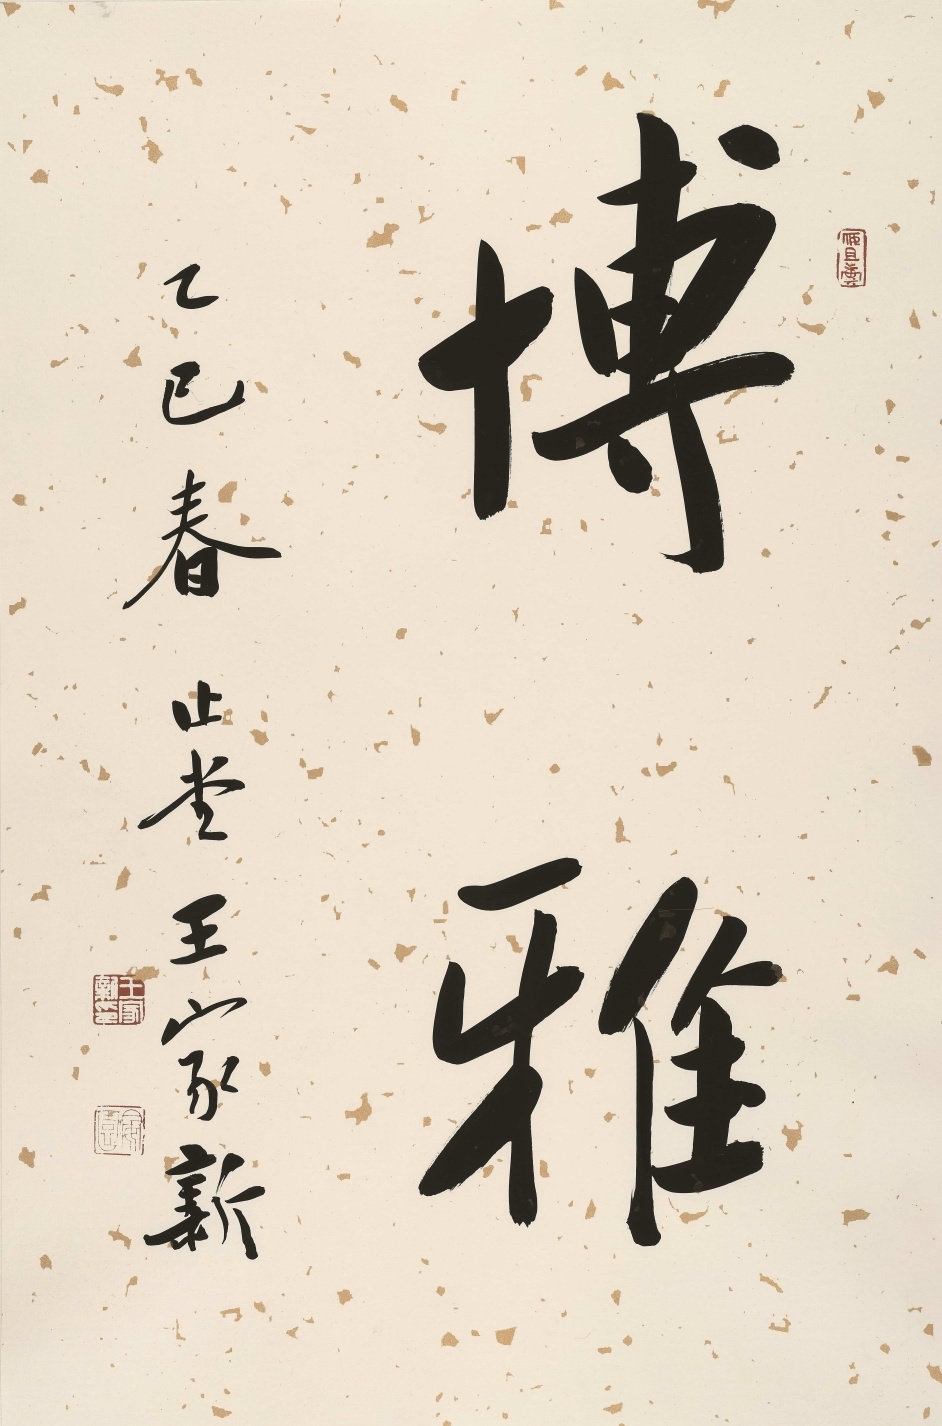 博雅
乙巳春 止堂王家新
王家新印